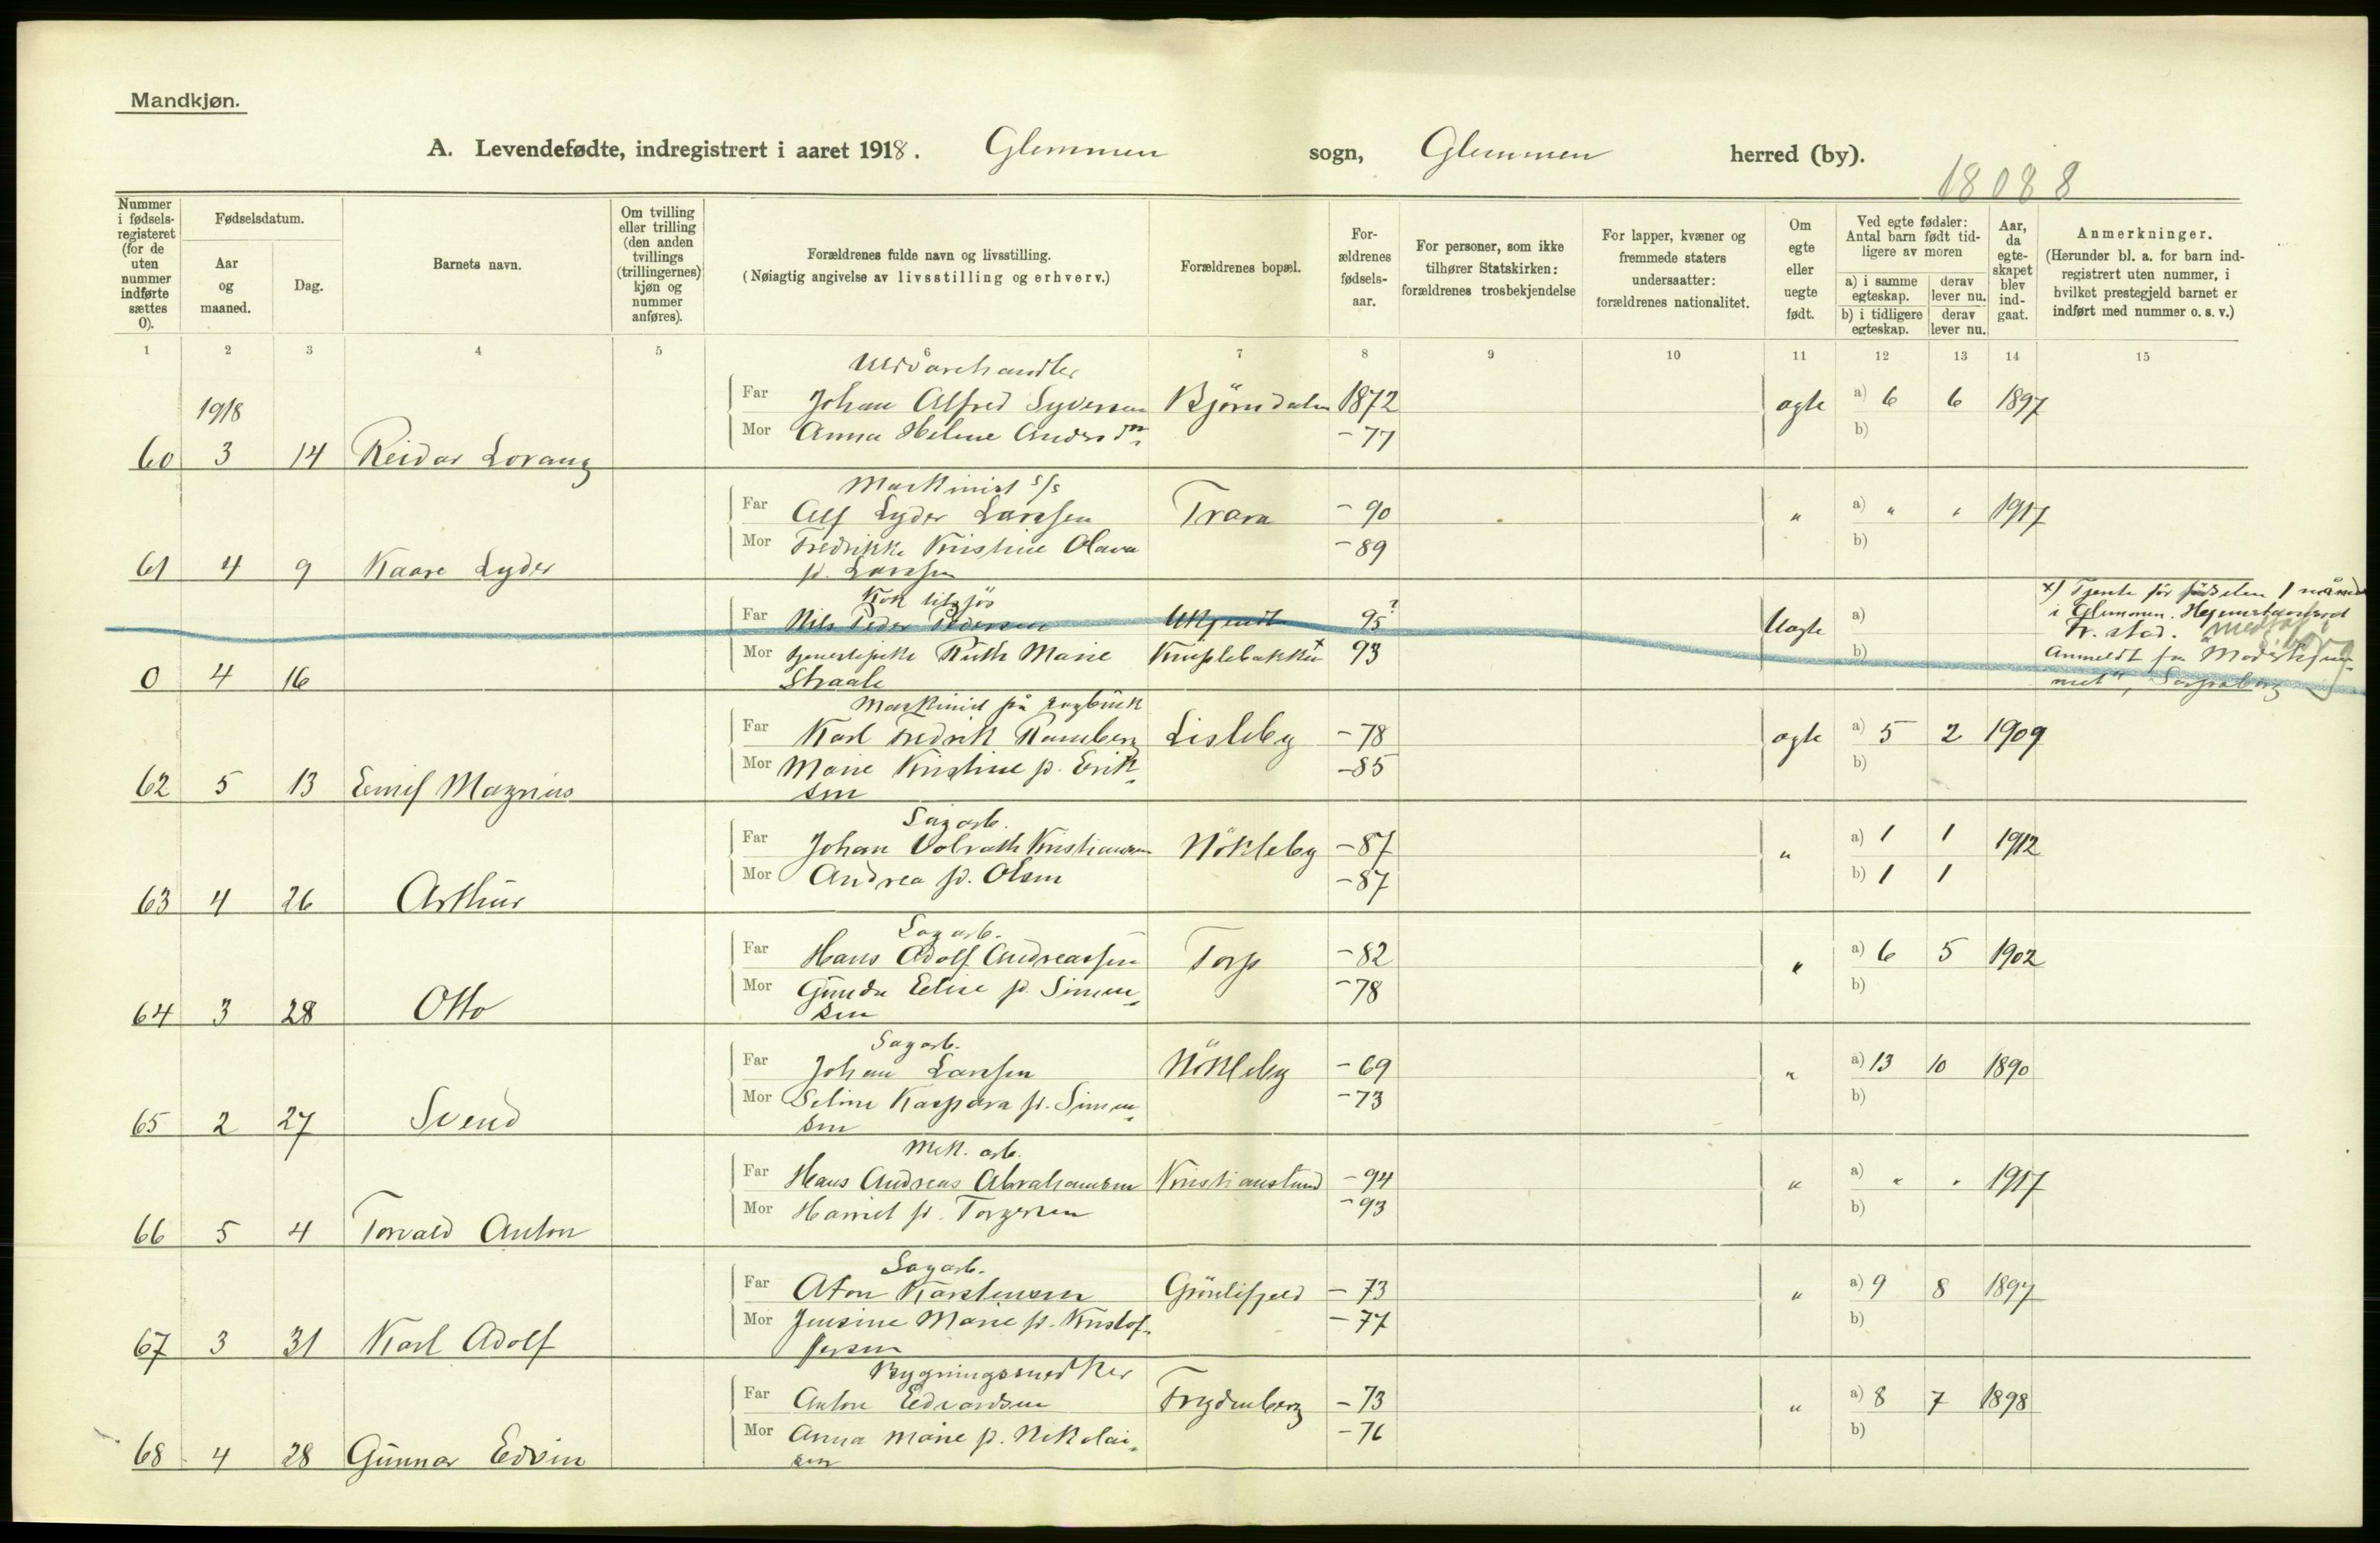 Mandkjøn.
A. Levendefødte, indregistrert i aaret 1918. Glemmen sogn, Glemmen herred (by).
18088
Nummer i fødsels-registeret (for de uten nummer indførte sættes 0).
Fødselsdatum.
Aar og maaned.
Dag.
Barnets navn.
Om tvilling eller trilling (den anden tvillings (trillingernes) kjøn og nummer anføres).
Forældrenes fulde navn og livsstilling.
(Nøiagtig angivelse av livsstilling og erhverv.)
Forældrenes bopæl.
For-ældrenes fødsels-aar.
For personer, som ikke tilhører Statskirken: forældrenes trosbekjendelse
For lapper, kvæner og fremmede staters undersaatter: forældrenes nationalitet.
Om egte eller uegte født.
Ved egte fødsler: Antal barn født tid-ligere av moren
a) i samme egteskap.
derav lever nu.
b) i tidligere egteskap.
derav lever nu.
Aar, da egte-skapet blev ind-gaat.
Anmerkninger.
(Herunder bl. a. for barn ind-registrert uten nummer, i hvilket prestegjeld barnet er indført med nummer o. s. v.)
1 2 3 4 5 6 7 8 9 10 11 12 13 14 15
Uldvarehandler
Far Johan Alfred Syversen Björndalen 1872 ægte a) 6 6 1897
1918
Mor Anna Helene Andersdtr - 77 b)
60 3 14 Reidar Lorang
Maskinist s/s
Far Alf Lyder Larssen Trara - 90 " a) " " 1917
Mor Fredrikke Kristine Olava - 89 b)
61 4 9 Kaare Lyder f. Larssen
x) Tjente før fødselen 1 maaned
Kok tilsjös
i Glemmen. Hjemstavnsret
Far Nils Peder Pedersen Ukjendt 95 ? Uægte a)
Fr. stad.
Mor tjenestepike Ruth Marie Kniplebakken x 93 b)
Anmeldt fra Mødrehjem-
0 4 16 Straale
met", Sarpsborg
Maskinist på sagbruk
Far Karl Fredrik Ramberg Lisleby - 78 ægte a) 5 2 1909
Mor Marie Kristine f. Erik- - 85 b)
62 5 13 Emil Magnus sen
Sagarb.
Far Johan Volrath Kristiansen Nökleby - 87 " a) 1 1 1912
Mor Andrea f. Olsen - 87 b) 1 1
63 4 26 Arthur
Sagarb.
Far Hans Adolf Andreassen Torp - 82 " a) 6 5 1902
Mor Gunda Eline f. Simen- - 78 b)
64 3 28 Otto sen
Sagarb.
Far Johan Larssen Nökleby - 69 " a) 13 10 1890
Mor Seline Kaspara f. Simen- - 73 b)
65 2 27 Svend sen
Mek. arb.
Far Hans Andreas Abrahamsen Kristianslund - 94 " a) " " 1917
Mor Harriet f. Torgersen - 93 b)
66 5 4 Torvald Anton
Sagarb.
Far Aton Karstensen Grönlifjeld - 73 " a) 9 8 1897
Mor Jensine Marie f. Kristof- - 77 b)
67 3 31 Karl Adolf fersen
Bygningssnedker
Far Anton Edvardsen Frydenberg - 73 " a) 8 7 1898
Mor Anna Marie f. Nikolai- - 76 b)
68 4 28 Gunnar Edvin sen